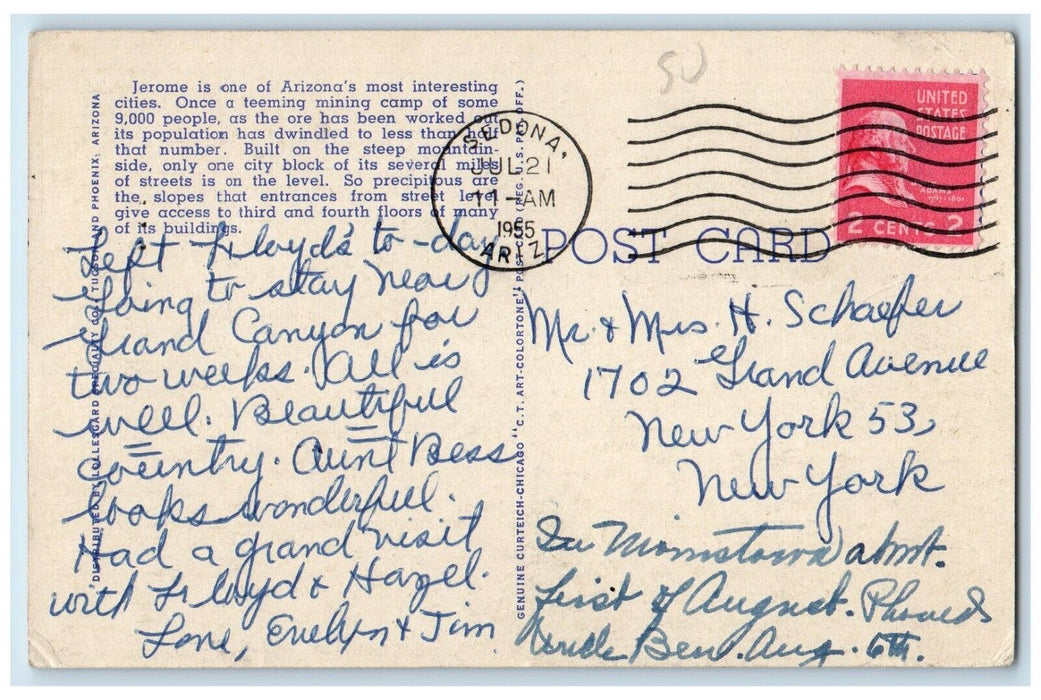 Jerome is one of Arizona's most interesting
cities. Once a teeming mining camp of some
9,000 people, as the ore has been worked out
its population has dwindled to less than half
that number. Built on the steep mountain-
side, only one city block of its several miles
of streets is on the level. So precipitous are
the slopes that entrances from street level
give access to third and fourth floors of many
of its buildings.
Left Floyd's to-day
Going to stay near
Grand Canyon for
two weeks. All is
well. Beautiful
country. Aunt Bess
looks wonderful.
Had a grand visit
with Floyd & Hazel.
Love, Evelyn & Jim
DISTRIBUTED BY LOLLESGARD SPECIALTY CO., TUCSON AND PHOENIX, ARIZONA
GENUINE CURTEICH-CHICAGO "C.T. ART-COLORTONE" POST CARD (REG. U.S. PAT. OFF.)
SEDONA,
JUL 21
11-AM
1955
ARIZ.
50
UNITED
STATES
POSTAGE
ADAMS
1797-1801
2 CENTS 2
POST CARD
Mr. & Mrs. H. Schaefer
1702 Grand Avenue
New York 53,
New York
In Morristown about
first of August. Phoned
Uncle Ben. Aug. 6th.